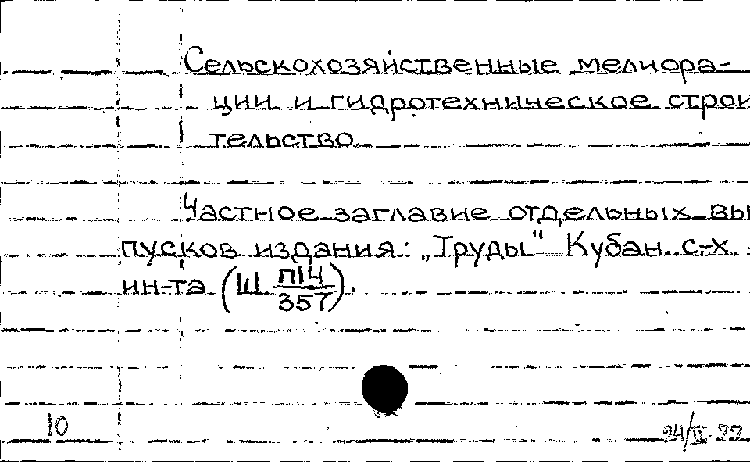 Сельскохозяйственные мелиора-
ции и гидротехническое строи
тельство
Частное заглавие отдельных вы
пусков издания: „Труды" Кубан. с-х
ин-та (Ш ПЦ/357).
10